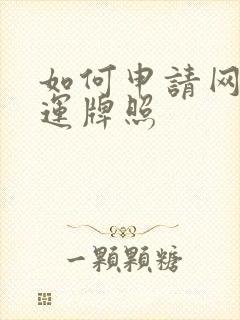 如何申請网
運牌照
一顆顆糖